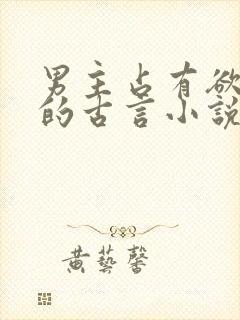 男主占有欲
的古言小說
黃藝馨